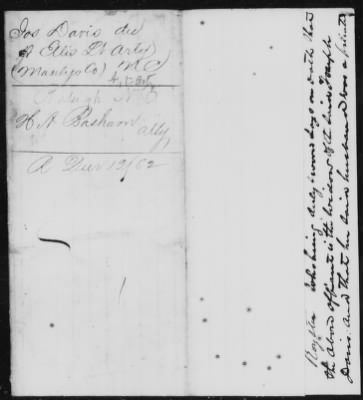 Jos Davis decd
of Ellis Lt Arty
(Manly's Co) N.C.
Raleigh N C
H A Basham Atty,
R Decr 12/62
who being duly sworn says on oath that
the above affiant is the widow of the said Joseph
Davis and that her said husband was a private